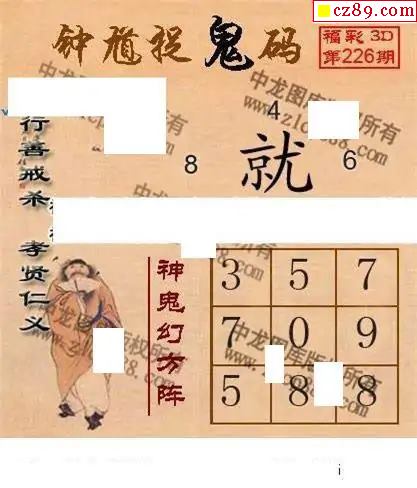 cz89.com
钟馗捉鬼码
福彩3D
第226期
行善戒杀 孝贤仁义
4
就
8
6
神鬼幻方阵
3 5 7
7 0 9
5 8 8
中龙图库版权所有
i